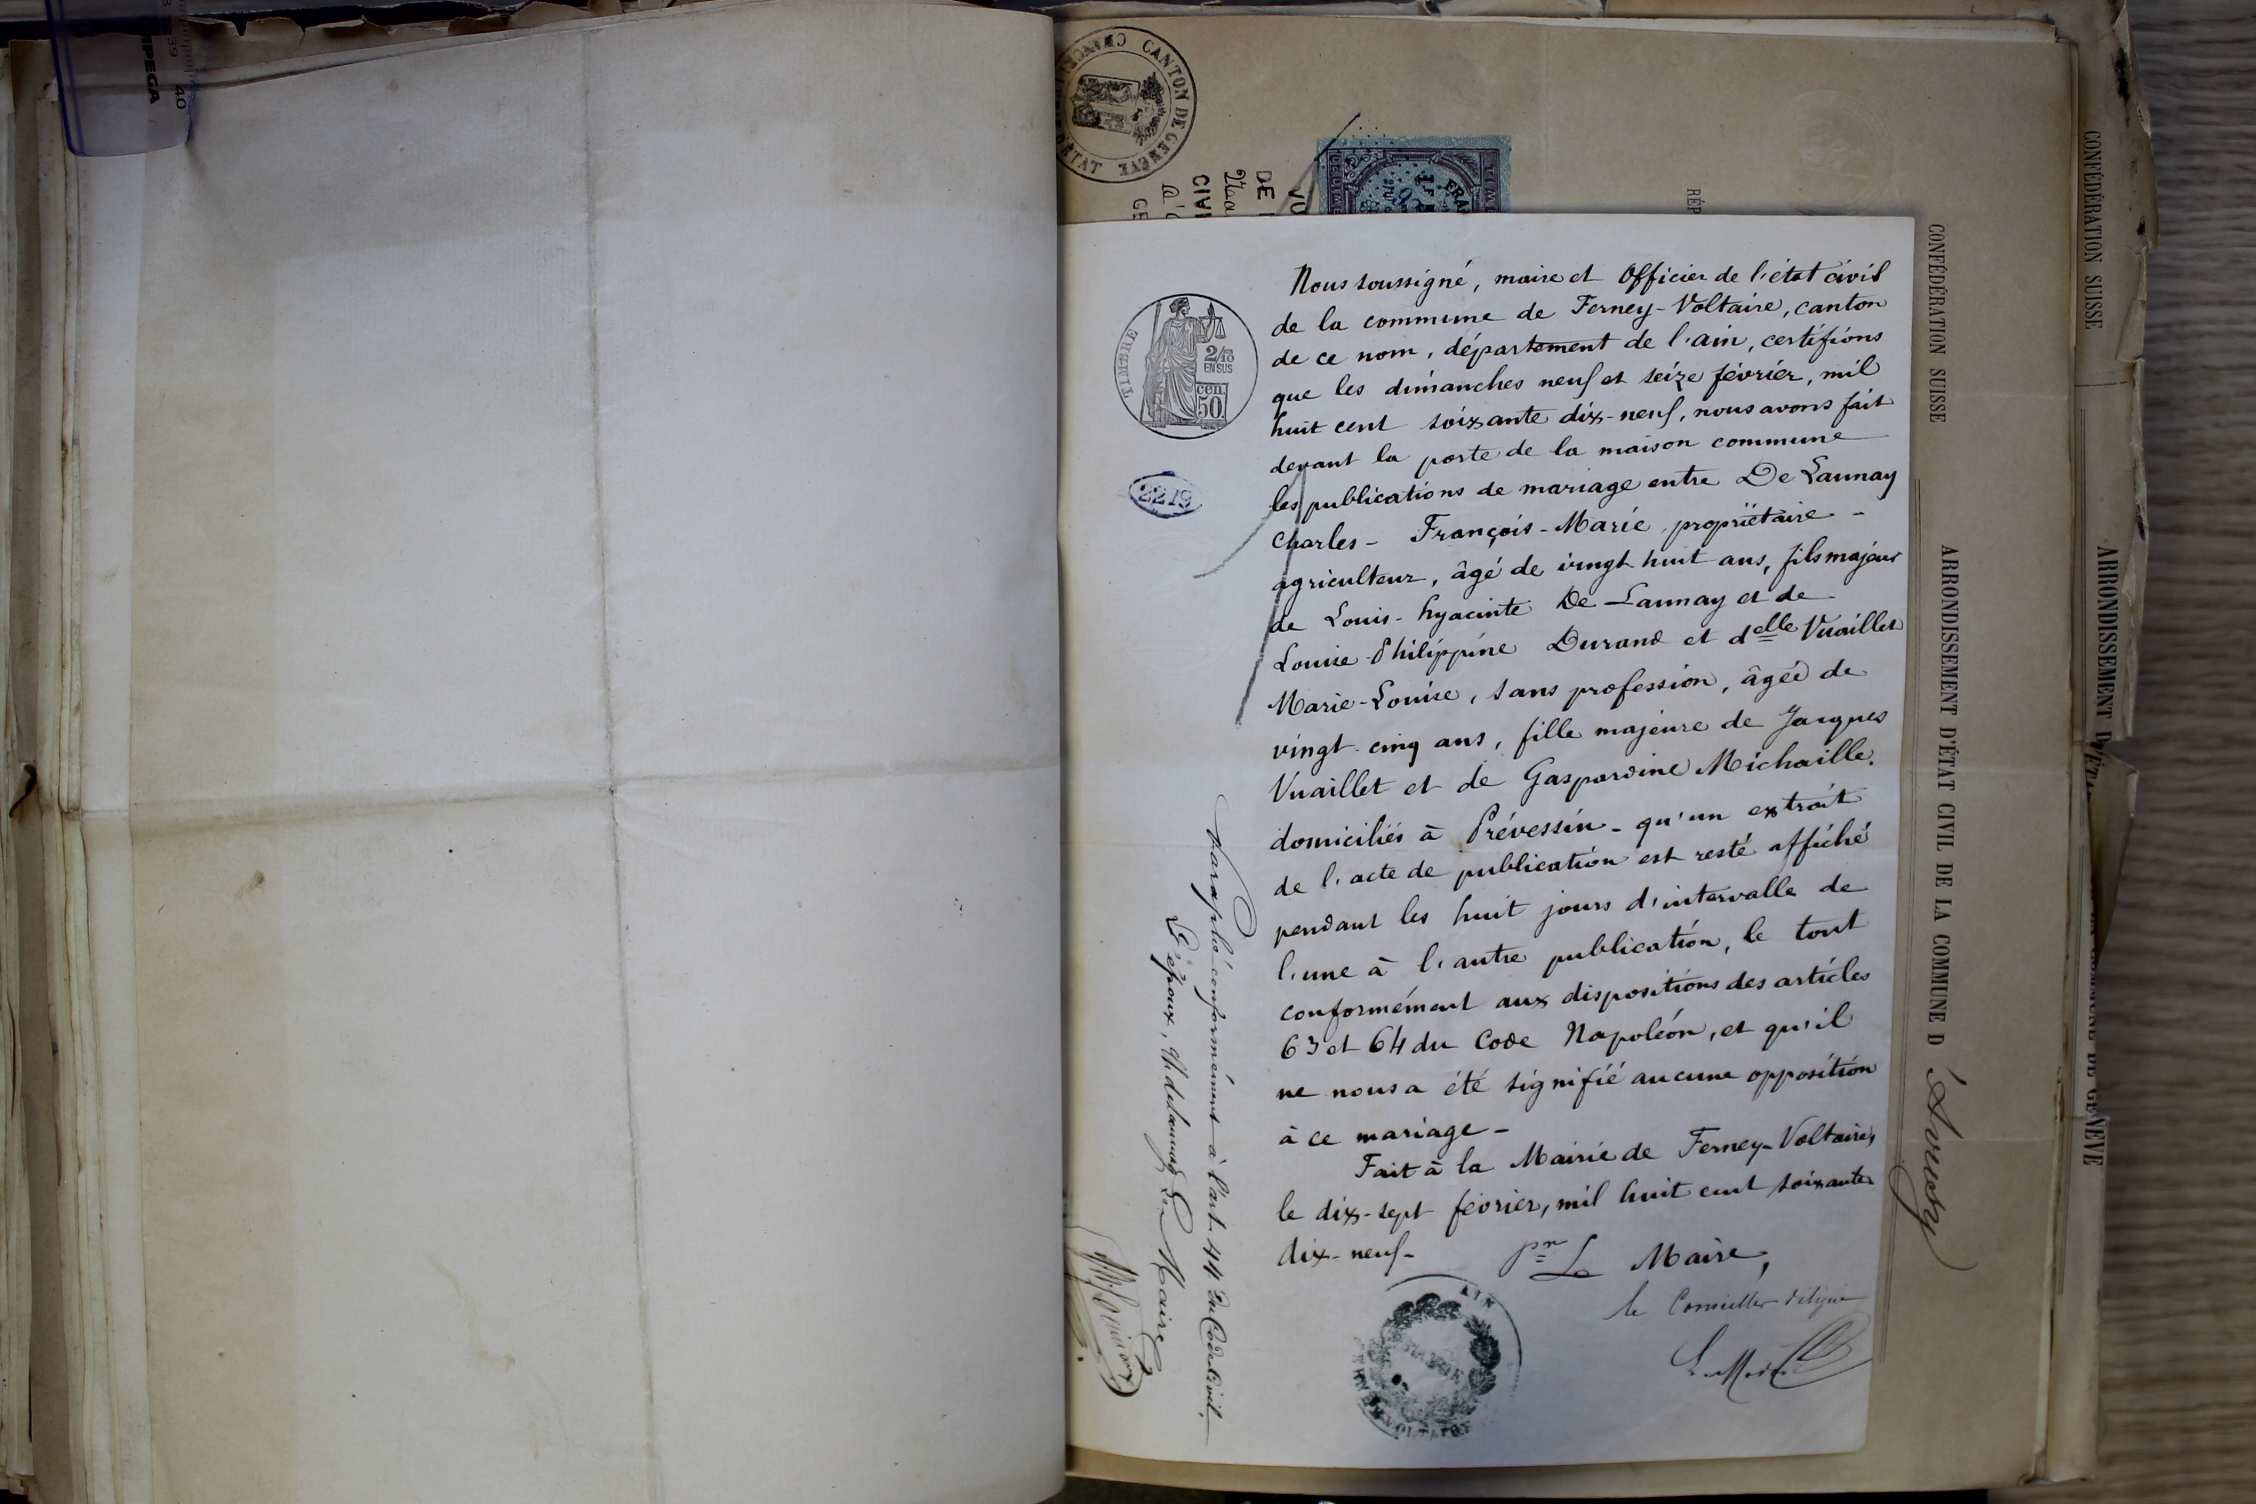 Nous soussigné, maire et Officier de l'état civil
de la commune de Ferney-Voltaire, canton
de ce nom, département de l'ain, certifions
que les dimanches neuf et seize février, mil
huit cent soixante dix-neuf, nous avons fait
devant la porte de la maison commune
les publications de mariage entre De Launay
Charles - François-Marie, propriétaire -
agriculteur, âgé de vingt huit ans, fils majeur
de Louis-hyacinte De Launay et de
Louise-Philippine Durand et delle Vuaillet
Marie-Louise, sans profession, âgée de
vingt-cinq ans, fille majeure de Jacques
Vuaillet et de Gaspardine Michaille.
domiciliés à Prévessin - qu'un extrait
de l'acte de publication est resté affiché
pendant les huit jours d'intervalle de
l'une à l'autre publication, le tout
conformément aux dispositions des articles
63 et 64 du Code Napoléon, et qu'il
ne nous a été signifié aucune opposition
à ce mariage -
Fait à la Mairie de Ferney-Voltaire,
le dix-sept février, mil huit cent soixante
dix-neuf -
pr L Maire,
le Conseiller délégué
TIMBRE
2/10
EN SUS
cen.
50.
2219
Paraphé conformément à l'art. 44 du Code Civil.
L'époux,
Le Maire
AIN
CANTON DE GENÈVE
CONFÉDÉRATION SUISSE
ARRONDISSEMENT D'ÉTAT CIVIL DE LA COMMUNE D'Avusy
CONFÉDÉRATION SUISSE
ARRONDISSEMENT D'ÉTA
DE GENÈVE
RÉP
DE
39
40